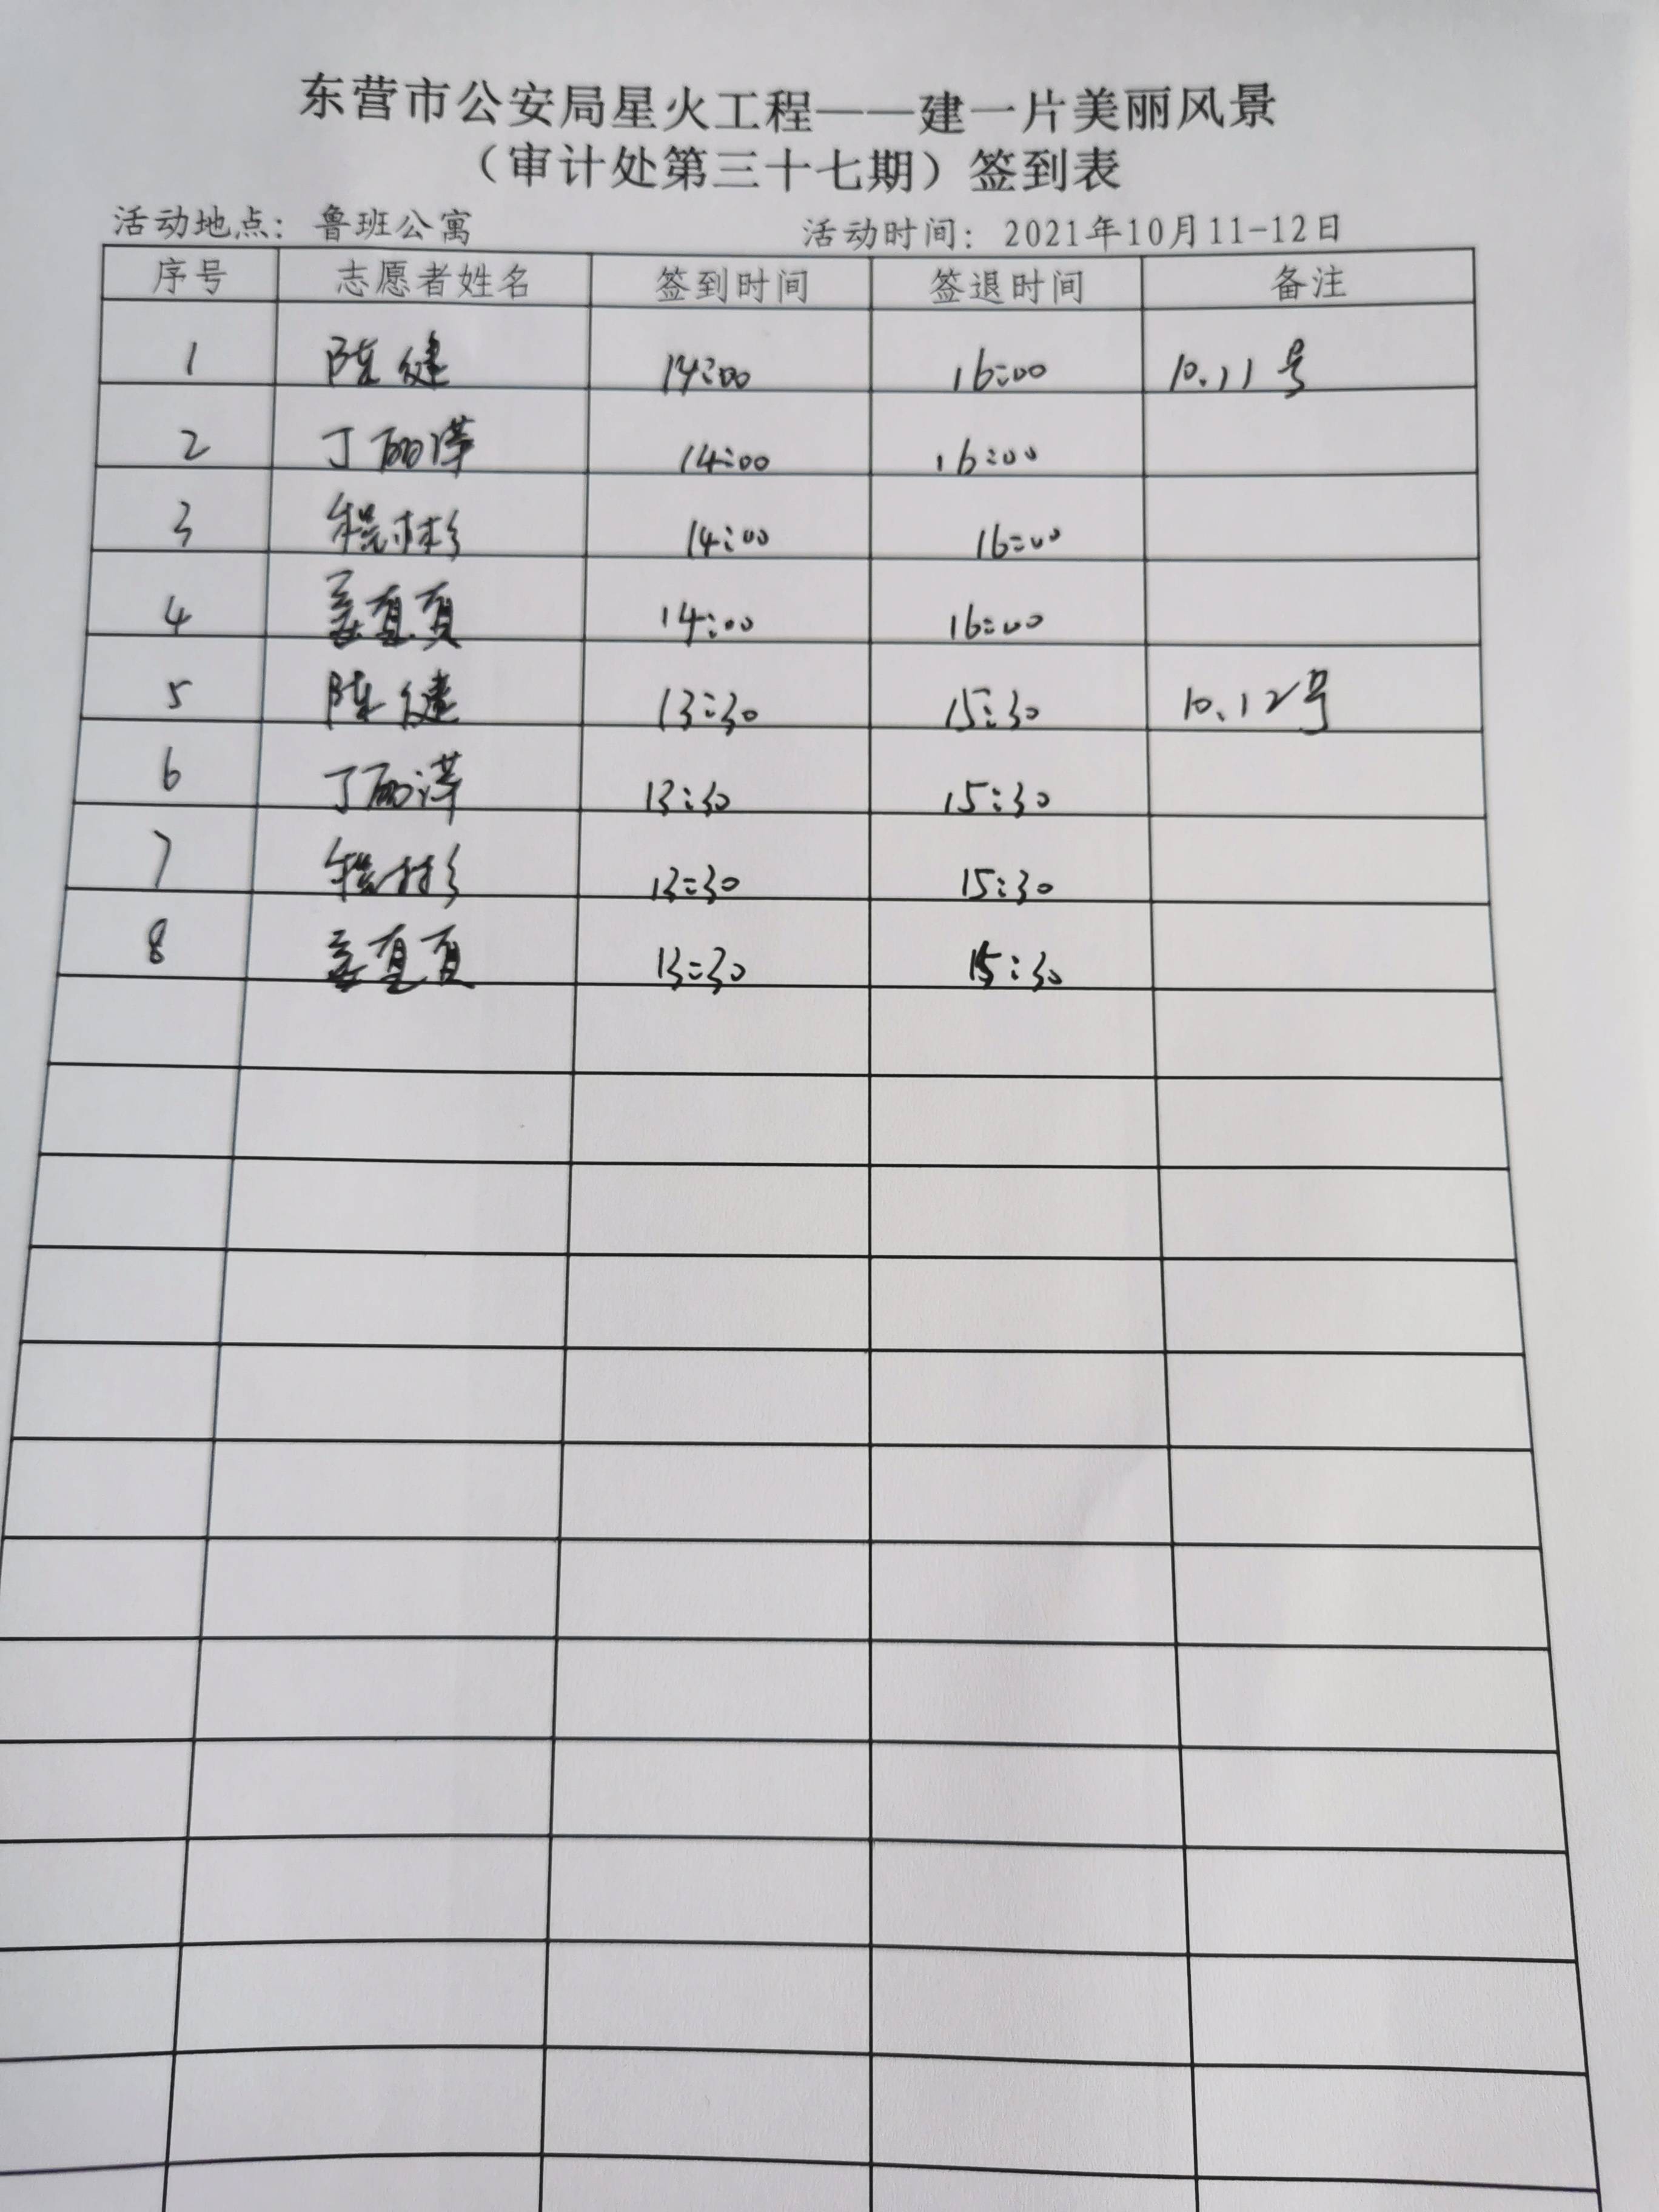 东营市公安局星火工程——建一片美丽风景
（审计处第三十七期）签到表
活动地点：鲁班公寓 活动时间：2021年10月11-12日
序号 志愿者姓名 签到时间 签退时间 备注
1 陈健 14:00 16:00 10.11号
2 丁丽萍 14:00 16:00
3 14:00 16:00
4 14:00 16:00
5 陈健 13:30 15:30 10.12号
6 丁丽萍 13:30 15:30
7 13:30 15:30
8 13:30 15:30